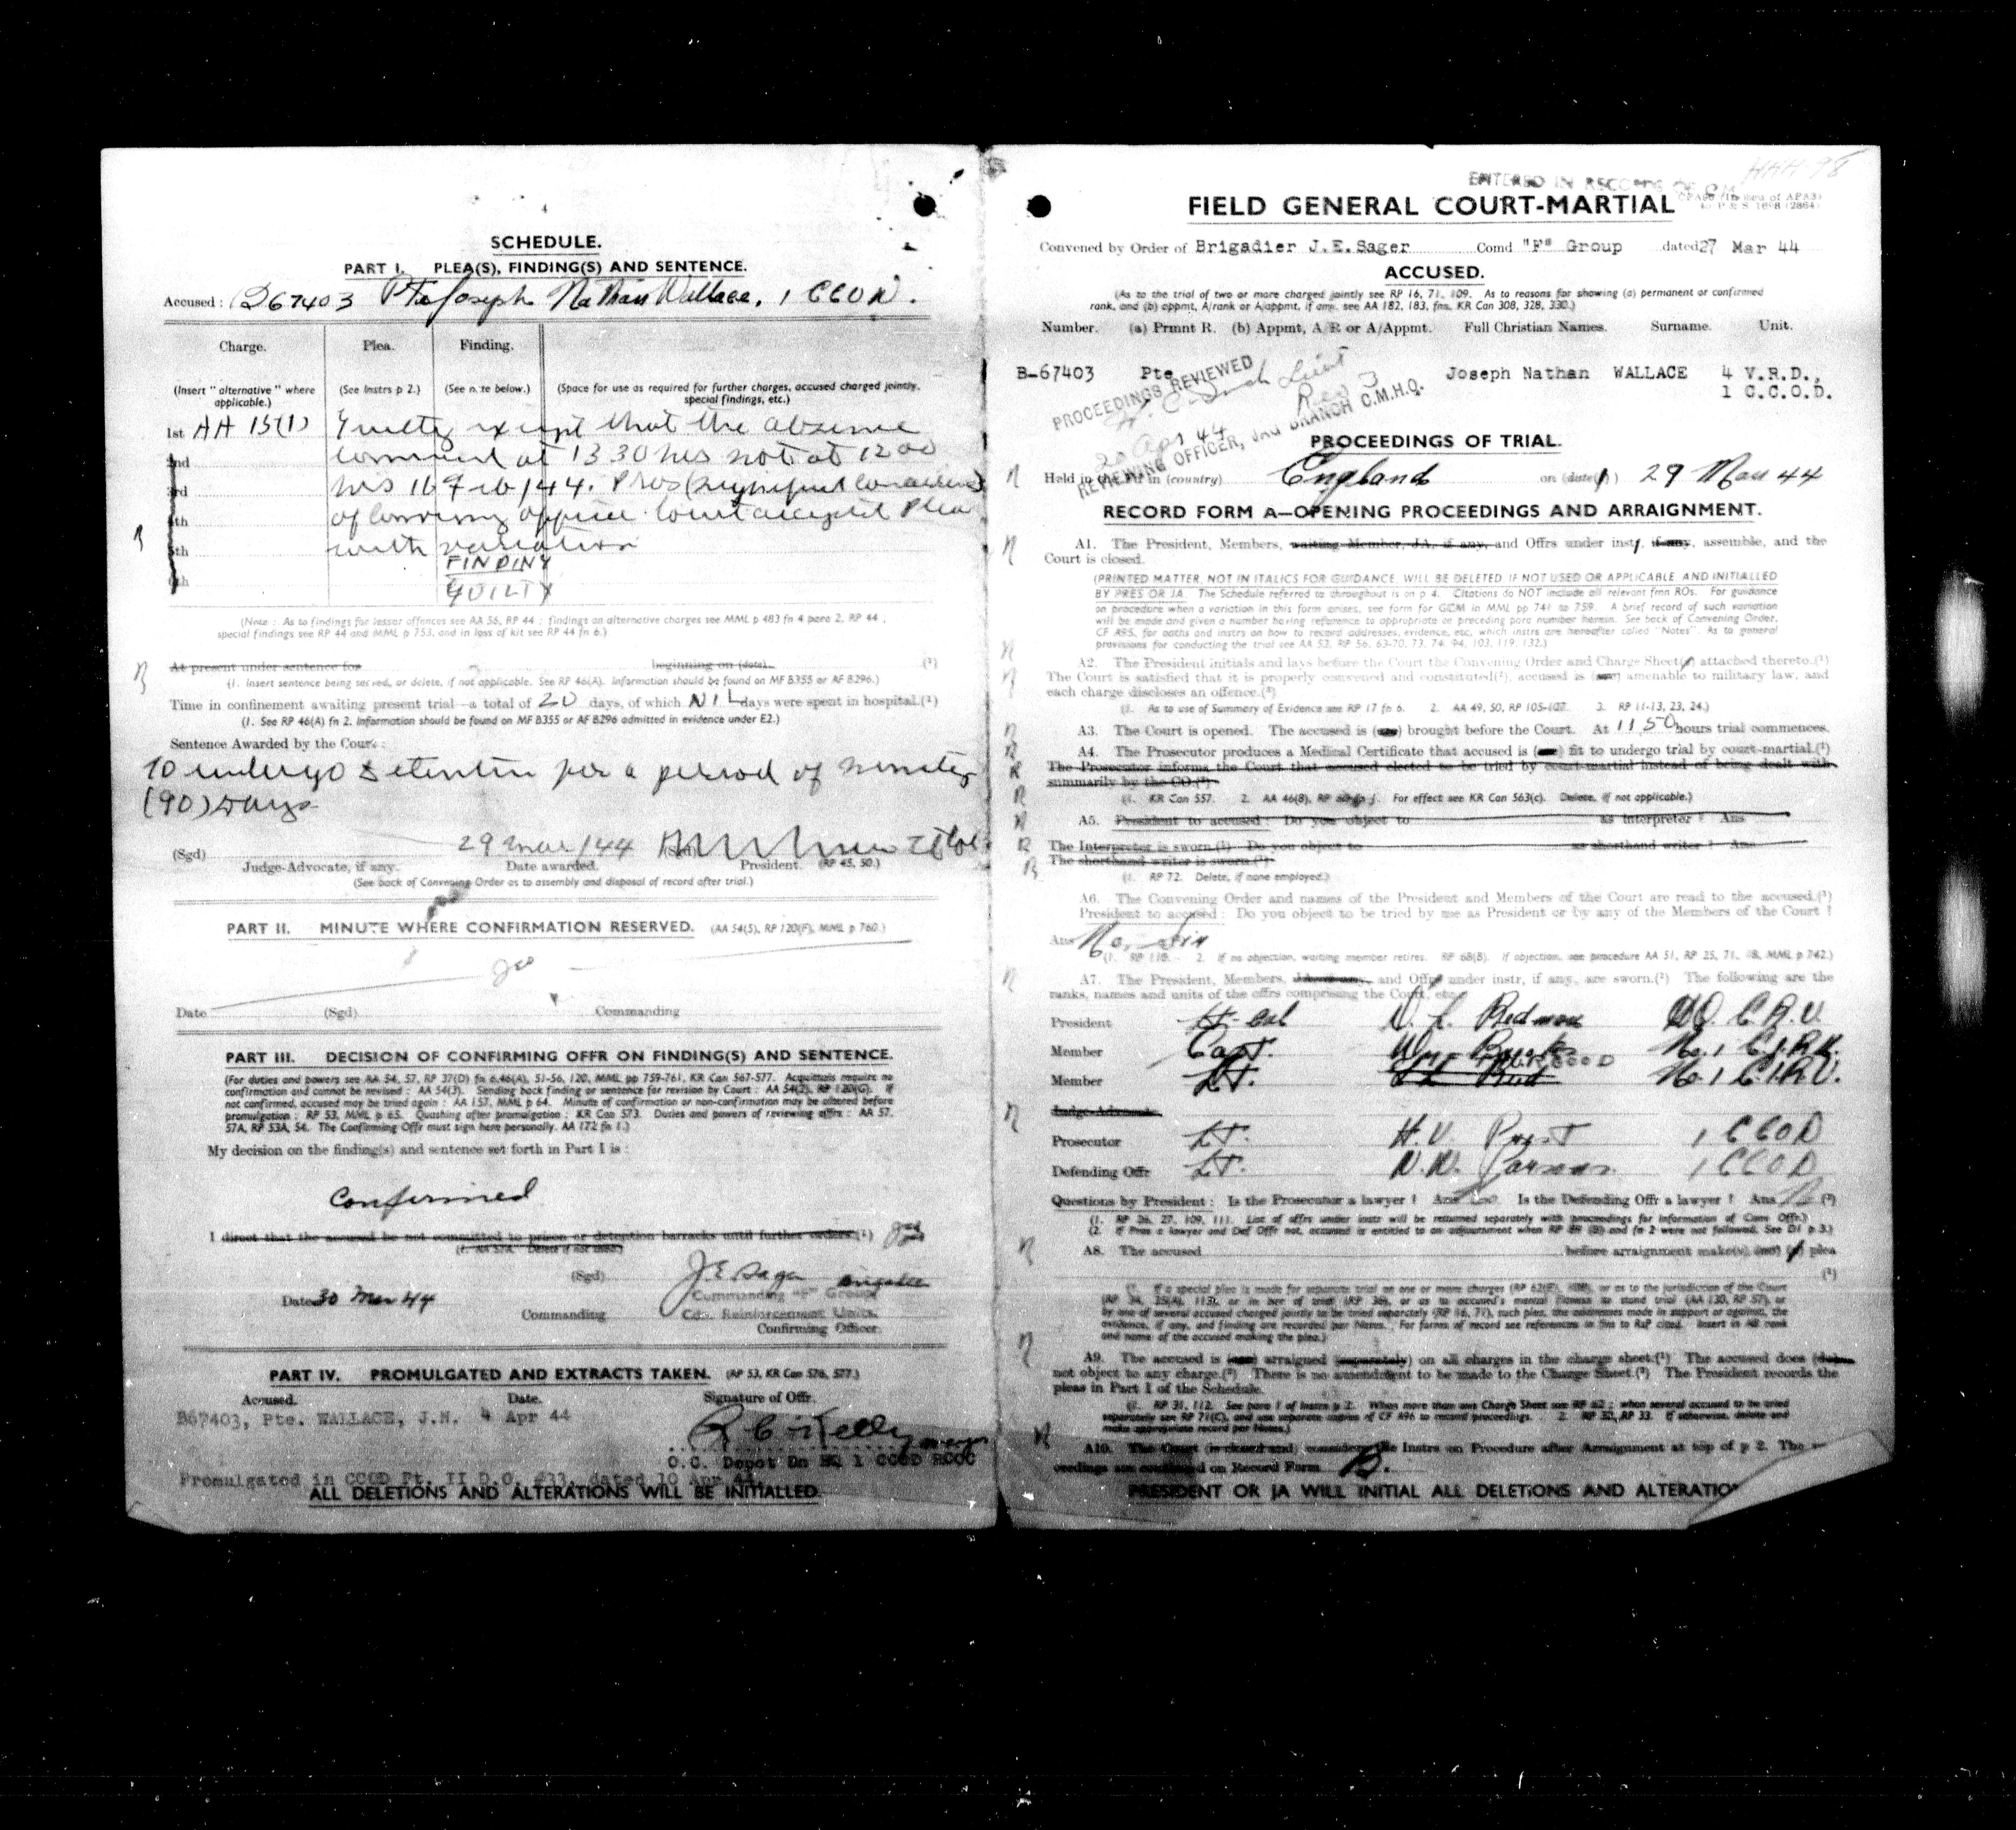 SCHEDULE.
PART I. PLEA(S), FINDING(S) AND SENTENCE.
Accused: B67403 Pte Joseph Nathan Wallace, 1 CCOD.
Charge. Plea. Finding.
(Insert "alternative" where applicable.) (See Instrs p 2.) (See note below.) (Space for use as required for further charges, accused charged jointly, special findings, etc.)
1st AA 15(1) Guilty except that the absence
2nd commenced at 1330 hrs not at 1200
3rd hrs 16 Feb/44. Pros (signified concurrence)
4th of convening officer. Court accepted Plea
5th with variation
FINDING
6th GUILTY
(Note: As to findings for lesser offences see AA 56, RP 44; findings on alternative charges see MML p 483 fn 4 para 2, RP 44;
special findings see RP 44 and MML p 753, and in loss of kit see RP 44 fn 6.)
At present under sentence for beginning on (date). (1)
(1. Insert sentence being served, or delete, if not applicable. See RP 46(A). Information should be found on MF B355 or AF B296.)
Time in confinement awaiting present trial—a total of 20 days, of which NIL days were spent in hospital.(1)
(1. See RP 46(A) fn 2. Information should be found on MF B355 or AF B296 admitted in evidence under E2.)
Sentence Awarded by the Court:
To undergo detention for a period of ninety
(90) days
(Sgd) 29 Mar/44 Lt Col
Judge-Advocate, if any. Date awarded. President. (RP 45, 50.)
(See back of Convening Order as to assembly and disposal of record after trial.)
PART II. MINUTE WHERE CONFIRMATION RESERVED. (AA 54(5), RP 120(F), MML p 760.)
Date (Sgd) Commanding
PART III. DECISION OF CONFIRMING OFFR ON FINDING(S) AND SENTENCE.
(For duties and powers see AA 54, 57, RP 37(D) fn 6,46(A), 51-56, 120, MML pp 759-761, KR Can 567-577. Acquittals require no
confirmation and cannot be revised: AA 54(3). Sending back finding or sentence for revision by Court: AA 54(2), RP 120(G). If
not confirmed, accused may be tried again: AA 157, MML p 64. Minute of confirmation or non-confirmation may be altered before
promulgation: RP 53, MML p 65. Quashing after promulgation: KR Can 573. Duties and powers of reviewing offrs: AA 57,
57A, RP 53A, 54. The Confirming Offr must sign here personally. AA 172 fn 1.)
My decision on the finding(s) and sentence set forth in Part I is:
Confirmed
I direct that the accused be not committed to prison or detention barracks until further orders.(1)
(1. AA 57A. Delete if not used.)
(Sgd) J.E. Sager Brigadier
Commanding "F" Group
Date 30 Mar 44 Commanding Cdn. Reinforcement Units.
Confirming Officer
PART IV. PROMULGATED AND EXTRACTS TAKEN. (RP 53, KR Can 576, 577.)
Accused. Date. Signature of Offr.
B67403, Pte. WALLACE, J.N. 4 Apr 44
R C Kelly Major
O.C. Depot Bn HQ 1 CCOD RCOC
Promulgated in CCOD Pt. II D.O. #33, dated 10 Apr 44.
ALL DELETIONS AND ALTERATIONS WILL BE INITIALLED.
ENTERED IN RECORDS OF C.M.
FIELD GENERAL COURT-MARTIAL
Convened by Order of Brigadier J.E.Sager Comd "F" Group dated 27 Mar 44
ACCUSED.
(As to the trial of two or more charged jointly see RP 16, 71, 109. As to reasons for showing (a) permanent or confirmed
rank, and (b) appmt, A/rank or A/appmt, if any, see AA 182, 183, fns, KR Can 308, 328, 330.)
Number. (a) Prmnt R. (b) Appmt, A/R or A/Appmt. Full Christian Names. Surname. Unit.
B-67403 Pte Joseph Nathan WALLACE 4 V.R.D.,
1 C.C.O.D.
PROCEEDINGS REVIEWED
20 Apr 44
REVIEWING OFFICER, JAG BRANCH C.M.H.Q.
PROCEEDINGS OF TRIAL.
Held in the Fd in (country) England on (date) 29 Mar 44
RECORD FORM A—OPENING PROCEEDINGS AND ARRAIGNMENT.
A1. The President, Members, waiting Member, JA, if any, and Offrs under instr, if any, assemble, and the
Court is closed.
(PRINTED MATTER, NOT IN ITALICS FOR GUIDANCE, WILL BE DELETED IF NOT USED OR APPLICABLE AND INITIALLED
BY PRES OR JA. The Schedule referred to throughout is on p 4. Citations do NOT include all relevant fmn ROs. For guidance
on procedure when a variation in this form arises, see form for GCM in MML pp 741 to 759. A brief record of such variation
will be made and given a number having reference to appropriate or preceding para number herein. See back of Convening Order,
CF A95, for oaths and instrs on how to record addresses, evidence, etc, which instrs are hereafter called "Notes". As to general
provisions for conducting the trial see AA 53, RP 56, 63-70, 73, 74, 94, 103, 119, 132.)
A2. The President initials and lays before the Court the Convening Order and Charge Sheet(s) attached thereto.(1)
The Court is satisfied that it is properly convened and constituted(2), accused is (are) amenable to military law, and
each charge discloses an offence.(3)
(1. As to use of Summary of Evidence see RP 17 fn 6. 2. AA 49, 50, RP 105-107. 3. RP 11-13, 23, 24.)
A3. The Court is opened. The accused is (are) brought before the Court. At 1150 hours trial commences.
A4. The Prosecutor produces a Medical Certificate that accused is (are) fit to undergo trial by court-martial.(1)
The Prosecutor informs the Court that accused elected to be tried by court-martial instead of being dealt with
summarily by the CO.(2)
(1. KR Can 557. 2. AA 46(8), RP For effect see KR Can 563(c). Delete, if not applicable.)
A5. President to accused: Do you object to as interpreter? Ans
The Interpreter is sworn.(1) Do you object to as shorthand writer? Ans
The shorthand writer is sworn.(1)
(1. RP 72. Delete, if none employed.)
A6. The Convening Order and names of the President and Members of the Court are read to the accused.(1)
President to accused: Do you object to be tried by me as President or by any of the Members of the Court?
Ans No, Sir
(1. RP 110. 2. If no objection, waiting member retires. RP 68(B). If objection, see procedure AA 51, RP 25, 71, MML p 742.)
A7. The President, Members, and Offrs under instr, if any, are sworn.(1) The following are the
ranks, names and units of the offrs comprising the Court, etc.
President Lt-Col
Member Capt.
Member Lt.
Judge-Advocate
Prosecutor Lt. H.V. 1 CCOD
Defending Offr Lt. Parsons 1 CCOD
Questions by President: Is the Prosecutor a lawyer? Ans Is the Defending Offr a lawyer? Ans No (2)
(1. RP 26, 27, 109, 111. List of offrs under instr will be returned separately with proceedings for information of Conv Offr.)
(2. If Pros a lawyer and Def Offr not, accused is entitled to an adjournment when RP and fn 2 were not followed. See D1 p 3.)
A8. The accused before arraignment make(s) plea
(1)
A9. The accused is (are) arraigned (separately) on all charges in the charge sheet.(1) The accused does (do)
not object to any charge.(2) There is no amendment to be made to the Charge Sheet.(2) The President records the
pleas in Part I of the Schedule.
A10. The Court (is closed and) considers the Instrs on Procedure after Arraignment at top of p 2. The
on Record Form B.
PRESIDENT OR JA WILL INITIAL ALL DELETIONS AND ALTERATIO